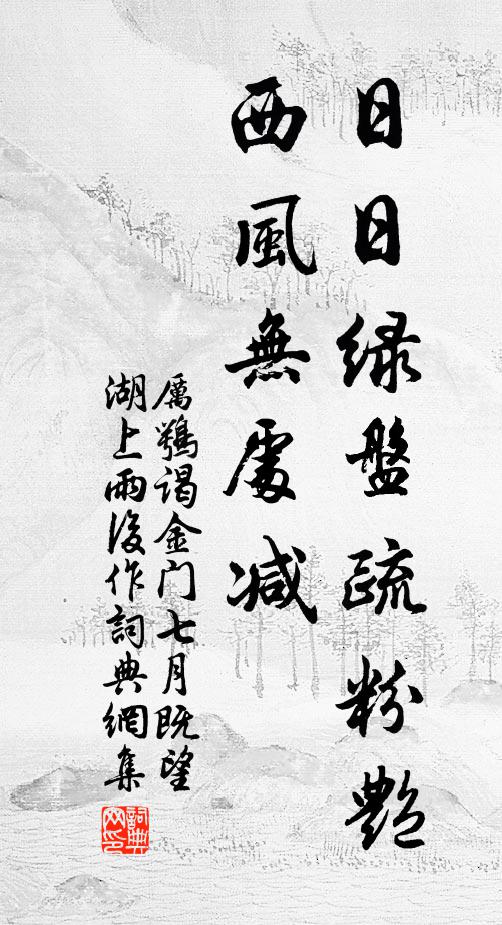 日日绿盤疏粉艷
西風無處減
厲鶚謁金门七月既望
湖上雨後作詞典網集
詞典網印